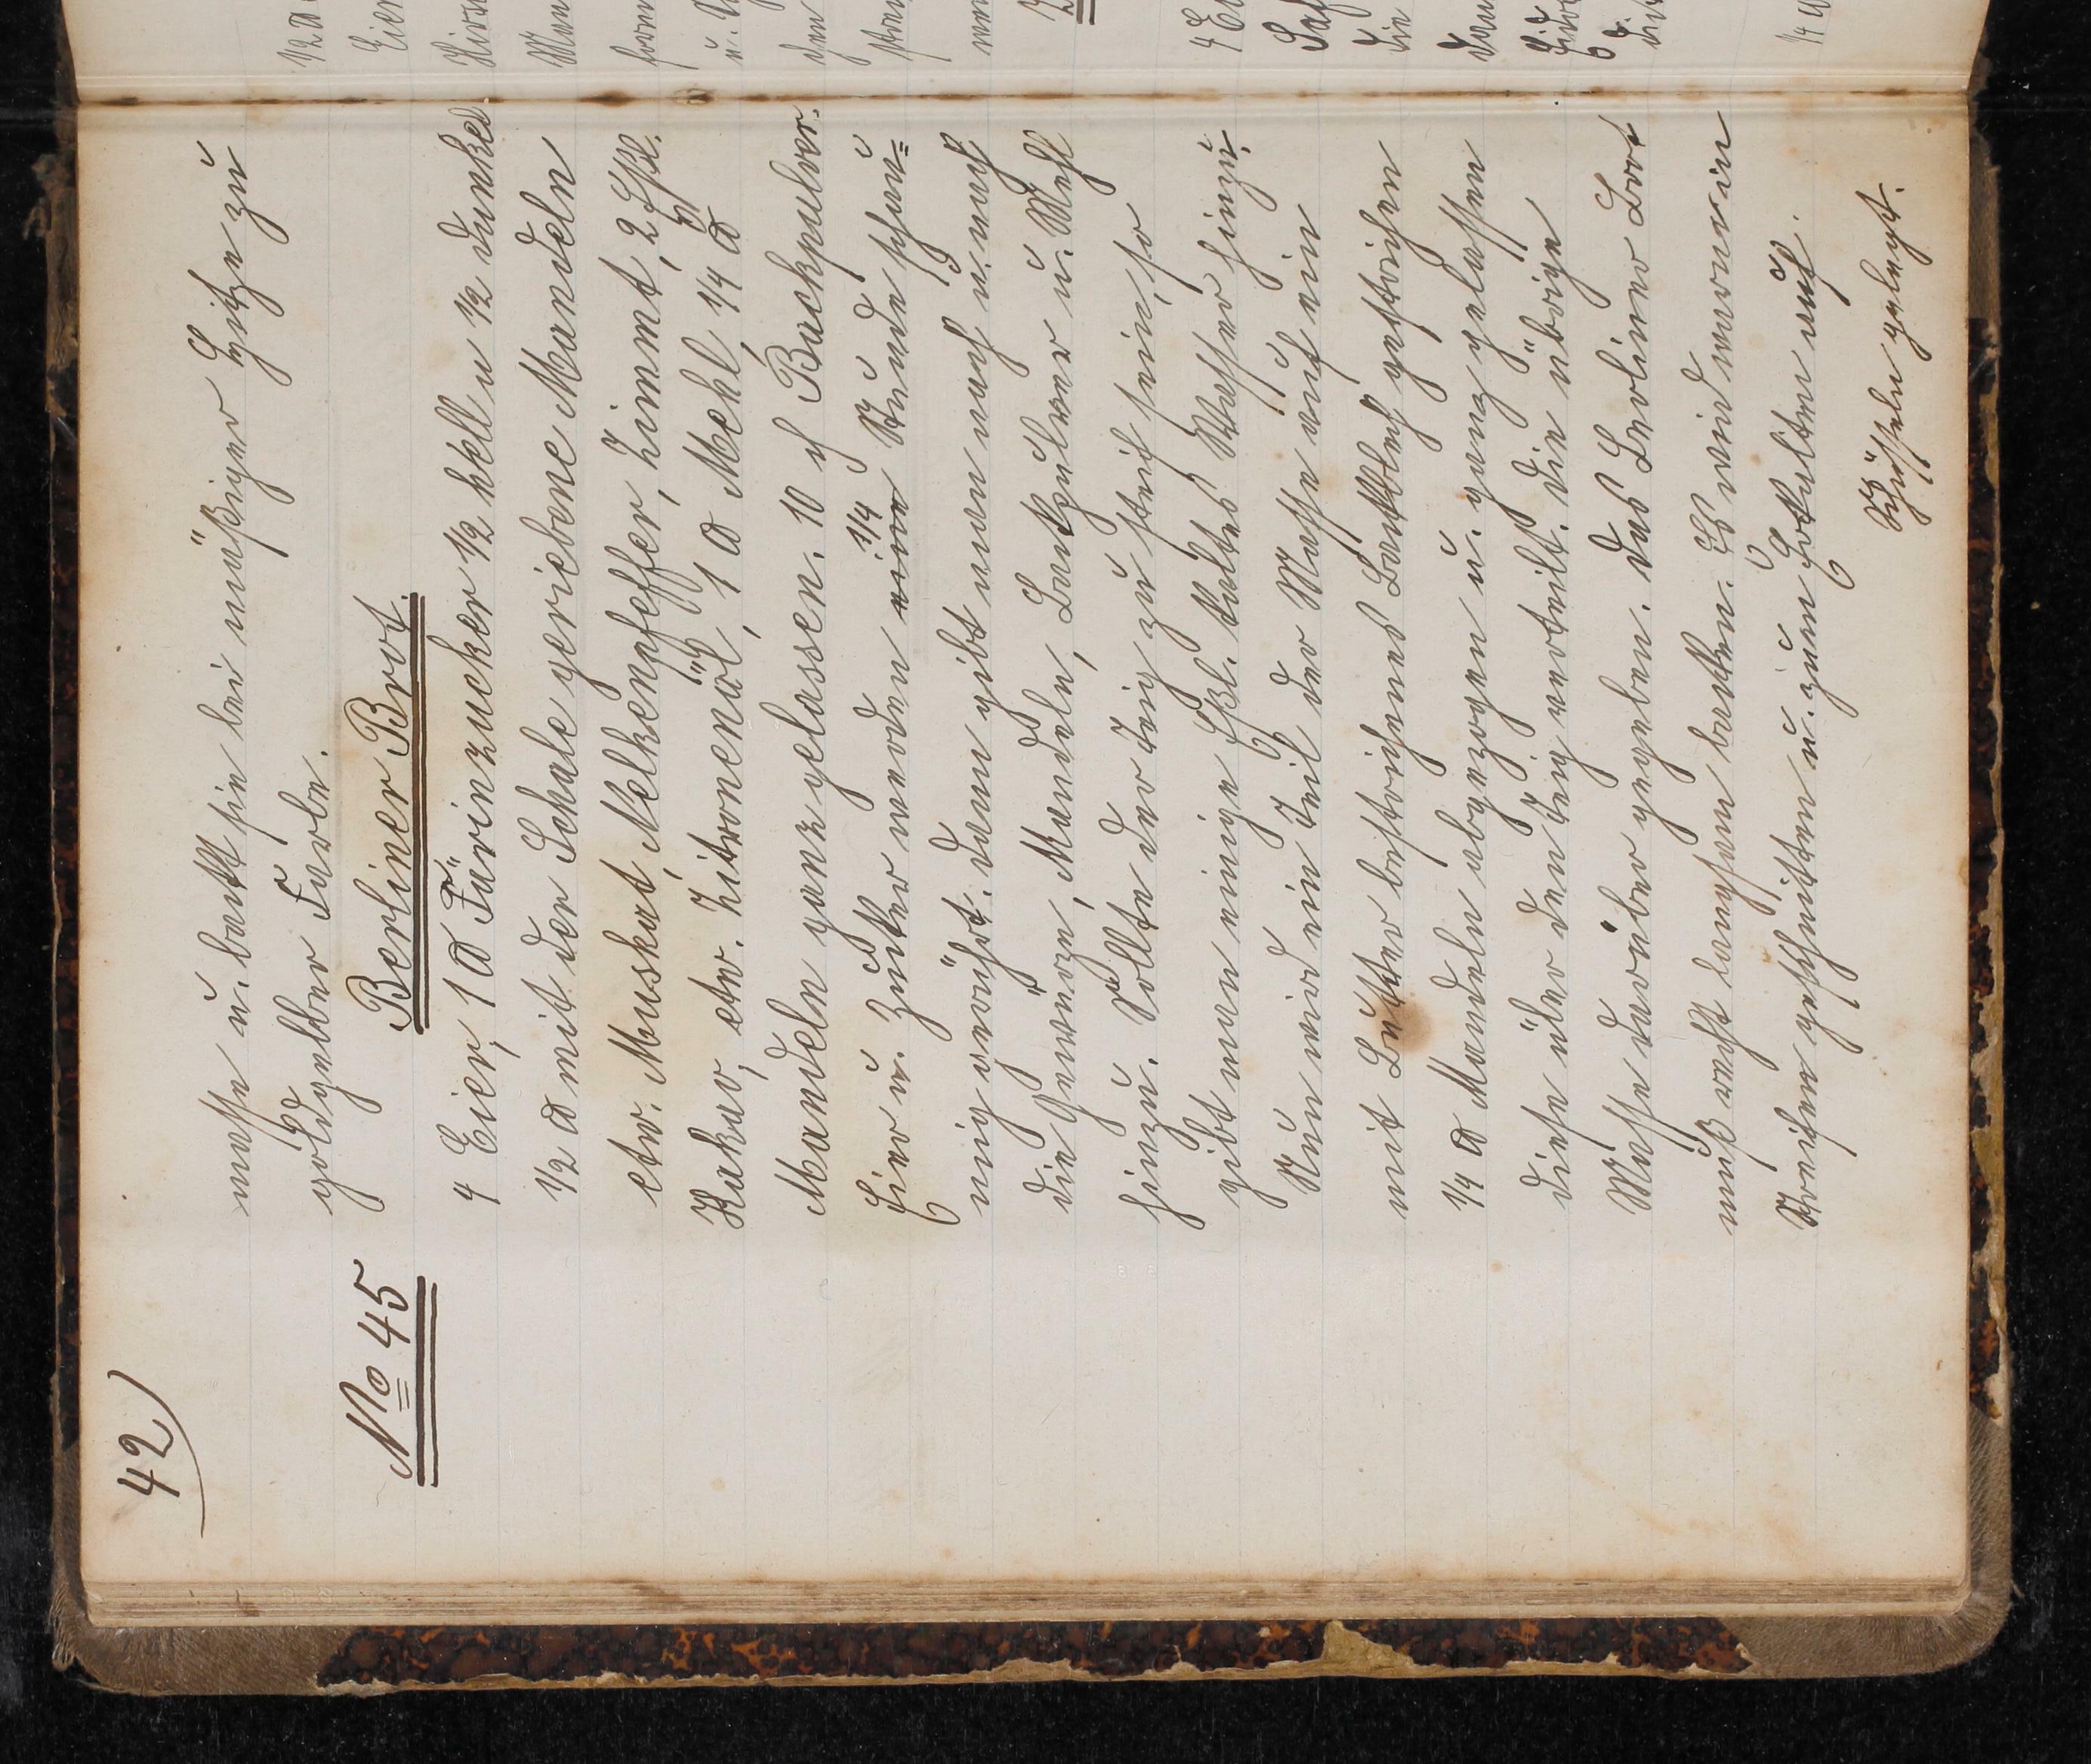 42)
masse u. backt sie bei mäßiger Hitze zu
goldgelber Farbe.
No 45 Berliner Brot.
4 Eier, 1 ℔ Farinzucker ½ hell u ½ dunkel
½ ℔ mit der Schale geriebene Mandeln
etw. Muskat, Nelkenpfeffer, Zimmt, 2 Eßl.
Kakao, etw. Zitronenöl, 1 ℔ Mehl, ¼ ℔
Mandeln ganz gelassen. 10 Pf Backpulver.
Eier u. Zucker werden eine ¼ Stunde schau=
mig gerührt. Dann gibt man nach u. nach
die Gewürze, Mandeln, Backpulver u. Mehl
hinzu. Sollte der Teig zu steif sein, so
gibt man einige Eßl. kaltes Wasser hinzu.
Nun wird ein Teil der Masse auf ein
mit Butter bestrichenes Backblech gestrichen
¼ ℔ Mandeln abgezogen u. ganz gelassen
diese über den Teig verteilt. Die übrige
Masse darüber gegeben. Das Berliner Brot
muß recht langsam backen. Es wird warm in
Streifen geschnitten u. zum Erkalten auf
Schüsseln gelegt.